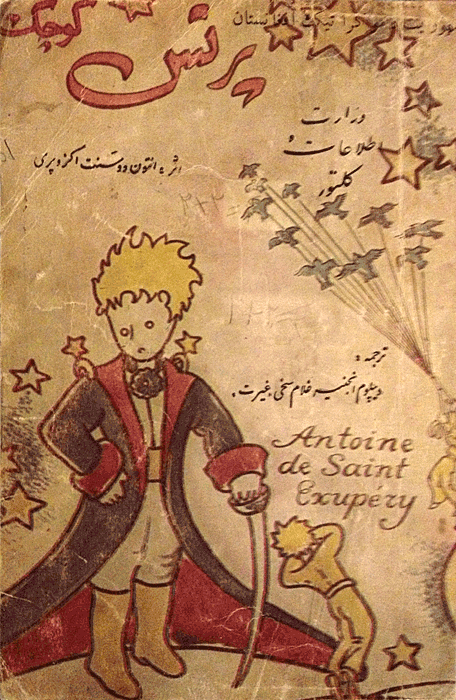 دمو کرا تیک افغانستان
پرنس کوچک
وزارت
اطلاعات و
کلتور
اثر : انتون دو سنت اکزوپری
ترجمه :
دیپلوم انجنیر غلام سخی غیرت .
Antoine
de Saint
Exupery